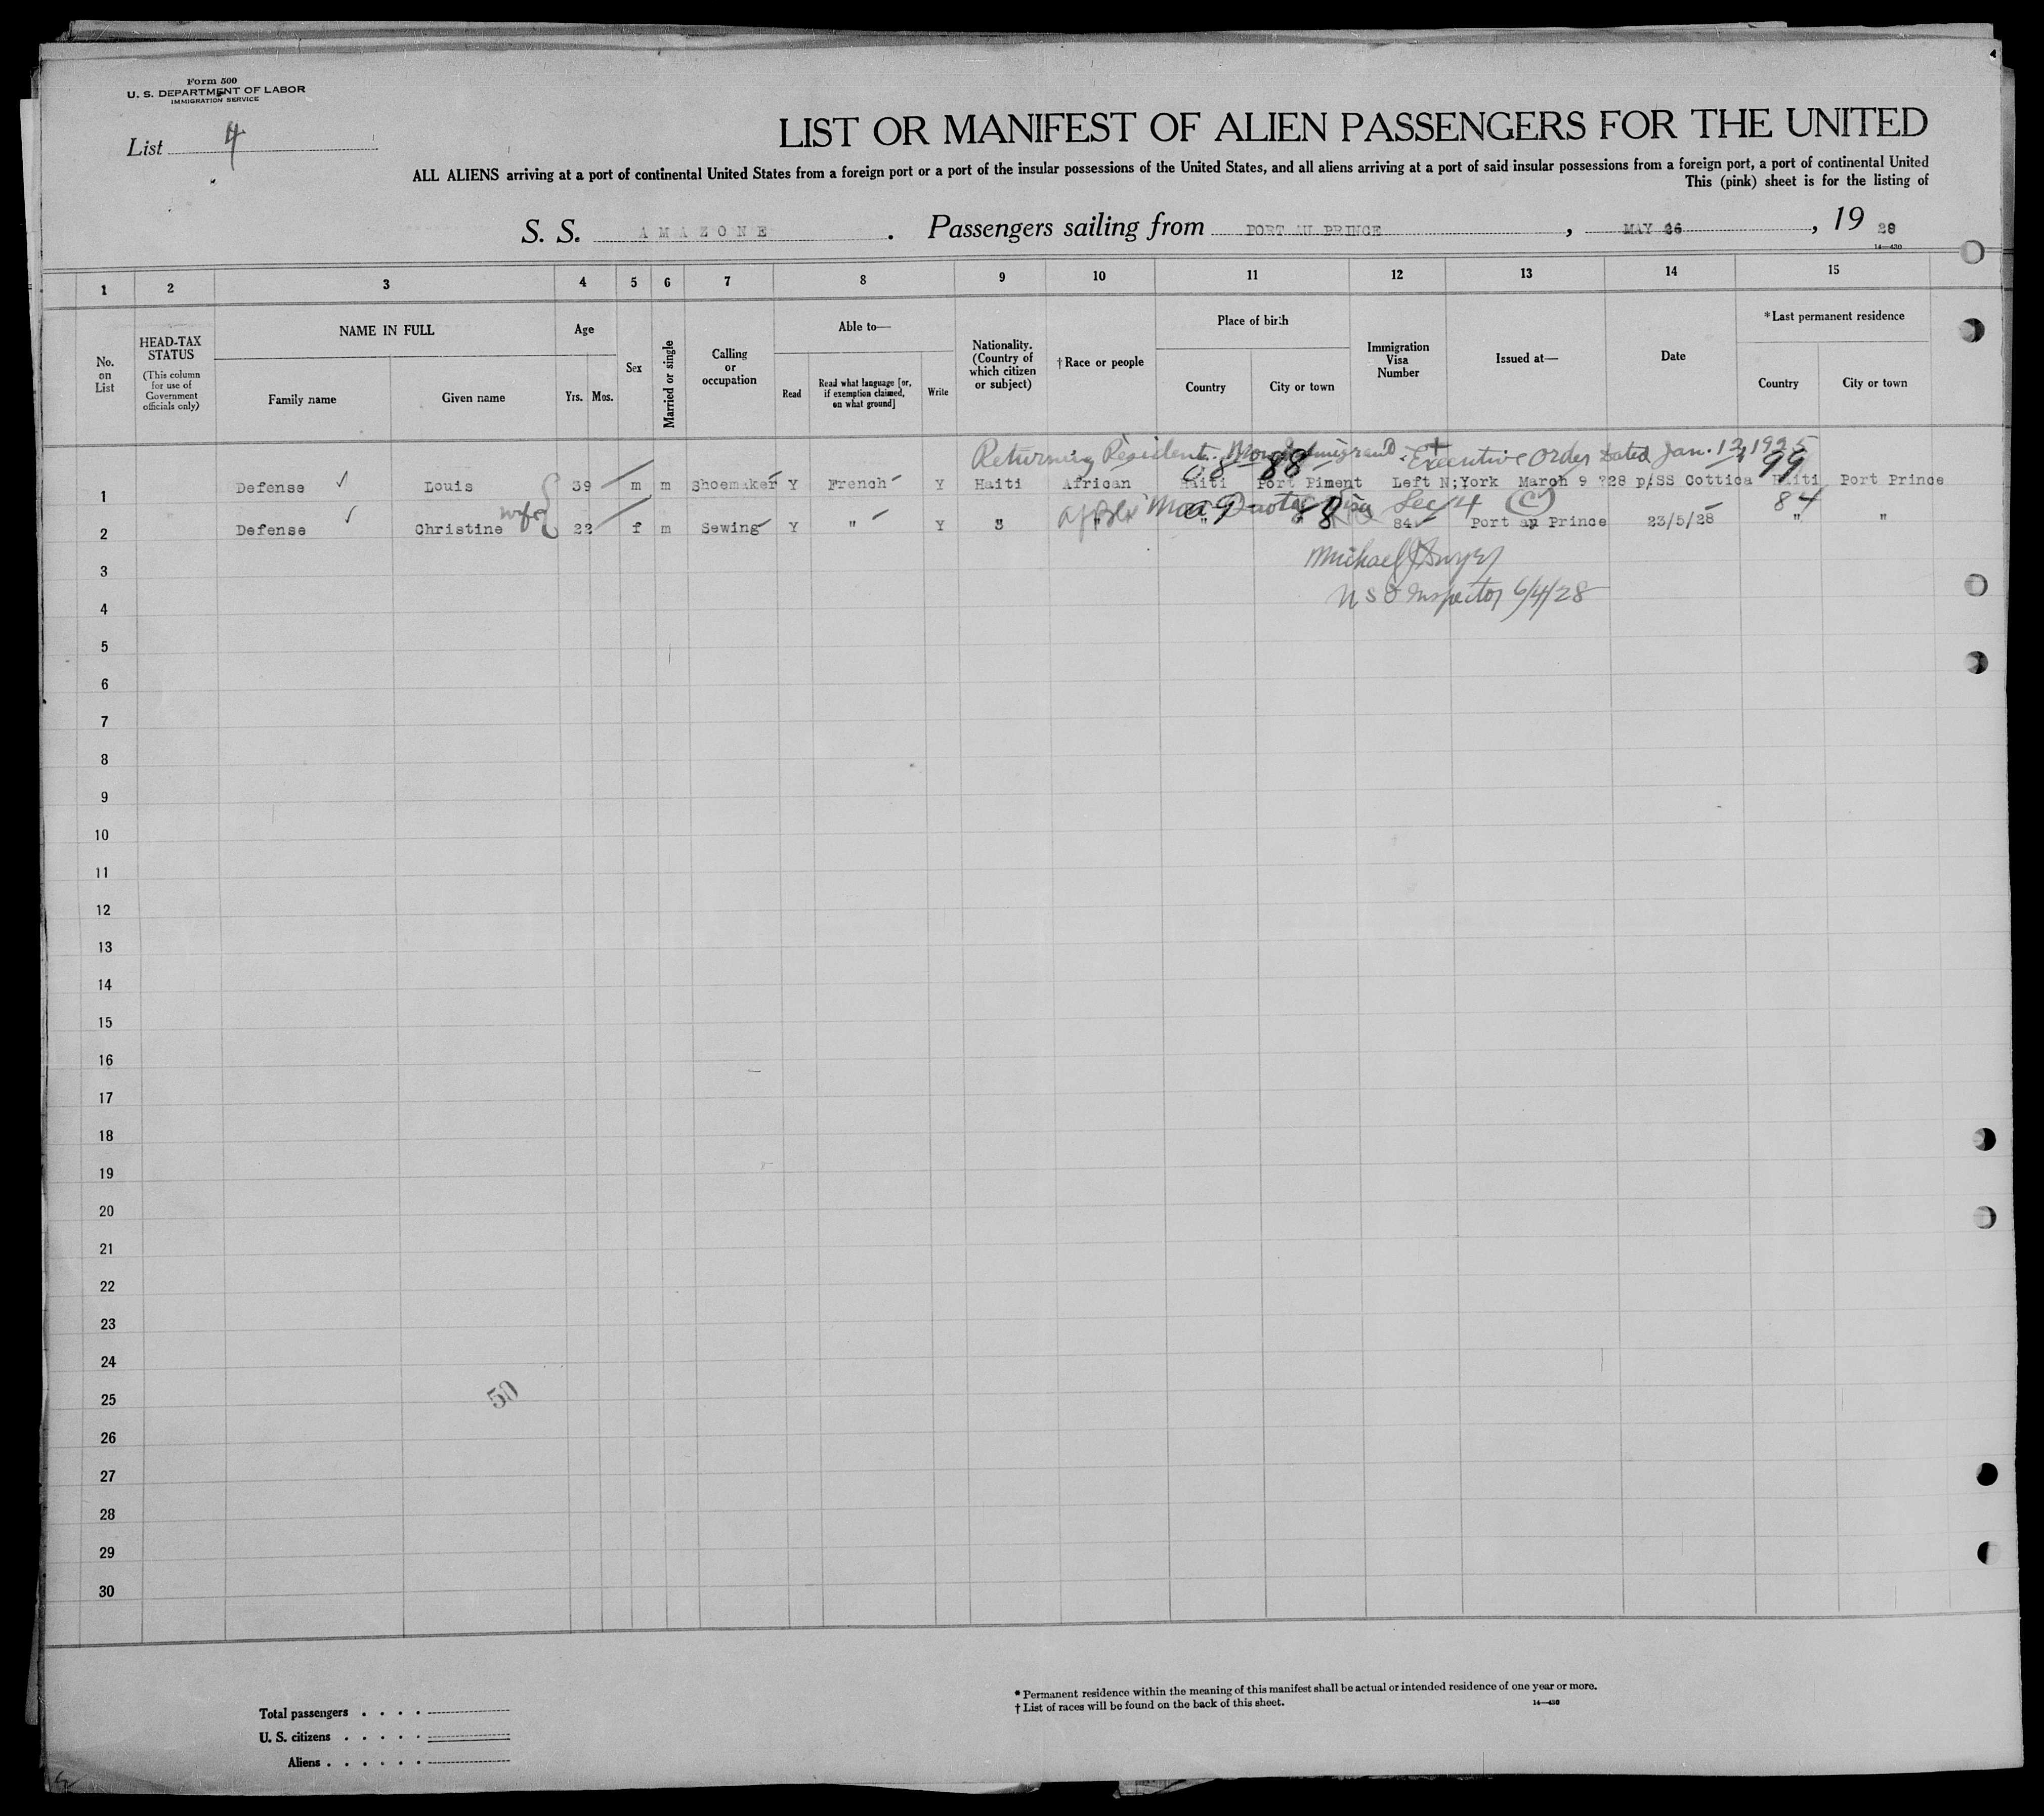 4
Form 500
U. S. DEPARTMENT OF LABOR
IMMIGRATION SERVICE
List 4
LIST OR MANIFEST OF ALIEN PASSENGERS FOR THE UNITED
ALL ALIENS arriving at a port of continental United States from a foreign port or a port of the insular possessions of the United States, and all aliens arriving at a port of said insular possessions from a foreign port, a port of continental United
This (pink) sheet is for the listing of
S. S. AMAZONE . Passengers sailing from PORT AU PRINCE , MAY 26 , 19 28
14—430
1 2 3 4 5 6 7 8 9 10 11 12 13 14 15
No. on List
HEAD-TAX STATUS
(This column for use of Government officials only)
NAME IN FULL
Family name
Given name
Age
Yrs. Mos.
Sex
Married or single
Calling or occupation
Able to—
Read
Read what language [or, if exemption claimed, on what ground]
Write
Nationality. (Country of which citizen or subject)
†Race or people
Place of birth
Country
City or town
Immigration Visa Number
Issued at—
Date
*Last permanent residence
Country
City or town
Returning Resident. Executive Order Dated Jan. 13, 1925
08 88 99
1 Defense Louis 39 m m Shoemaker Y French Y Haiti African Haiti Port Piment Left N;York March 9 28 p/SS Cottica Haiti Port Prince
wife Af Blk Sec 4 (C) 84
2 Defense Christine 22 f m Sewing Y " Y " " " 84 Port au Prince 23/5/28 " "
3
Michael
4
U S Inspector 6/4/28
5
6
7
8
9
10
11
12
13
14
15
16
17
18
19
20
21
22
23
24
25
50
26
27
28
29
30
* Permanent residence within the meaning of this manifest shall be actual or intended residence of one year or more.
† List of races will be found on the back of this sheet. 14—430
Total passengers . . . .
U. S. citizens . . . . .
Aliens . . . . . .